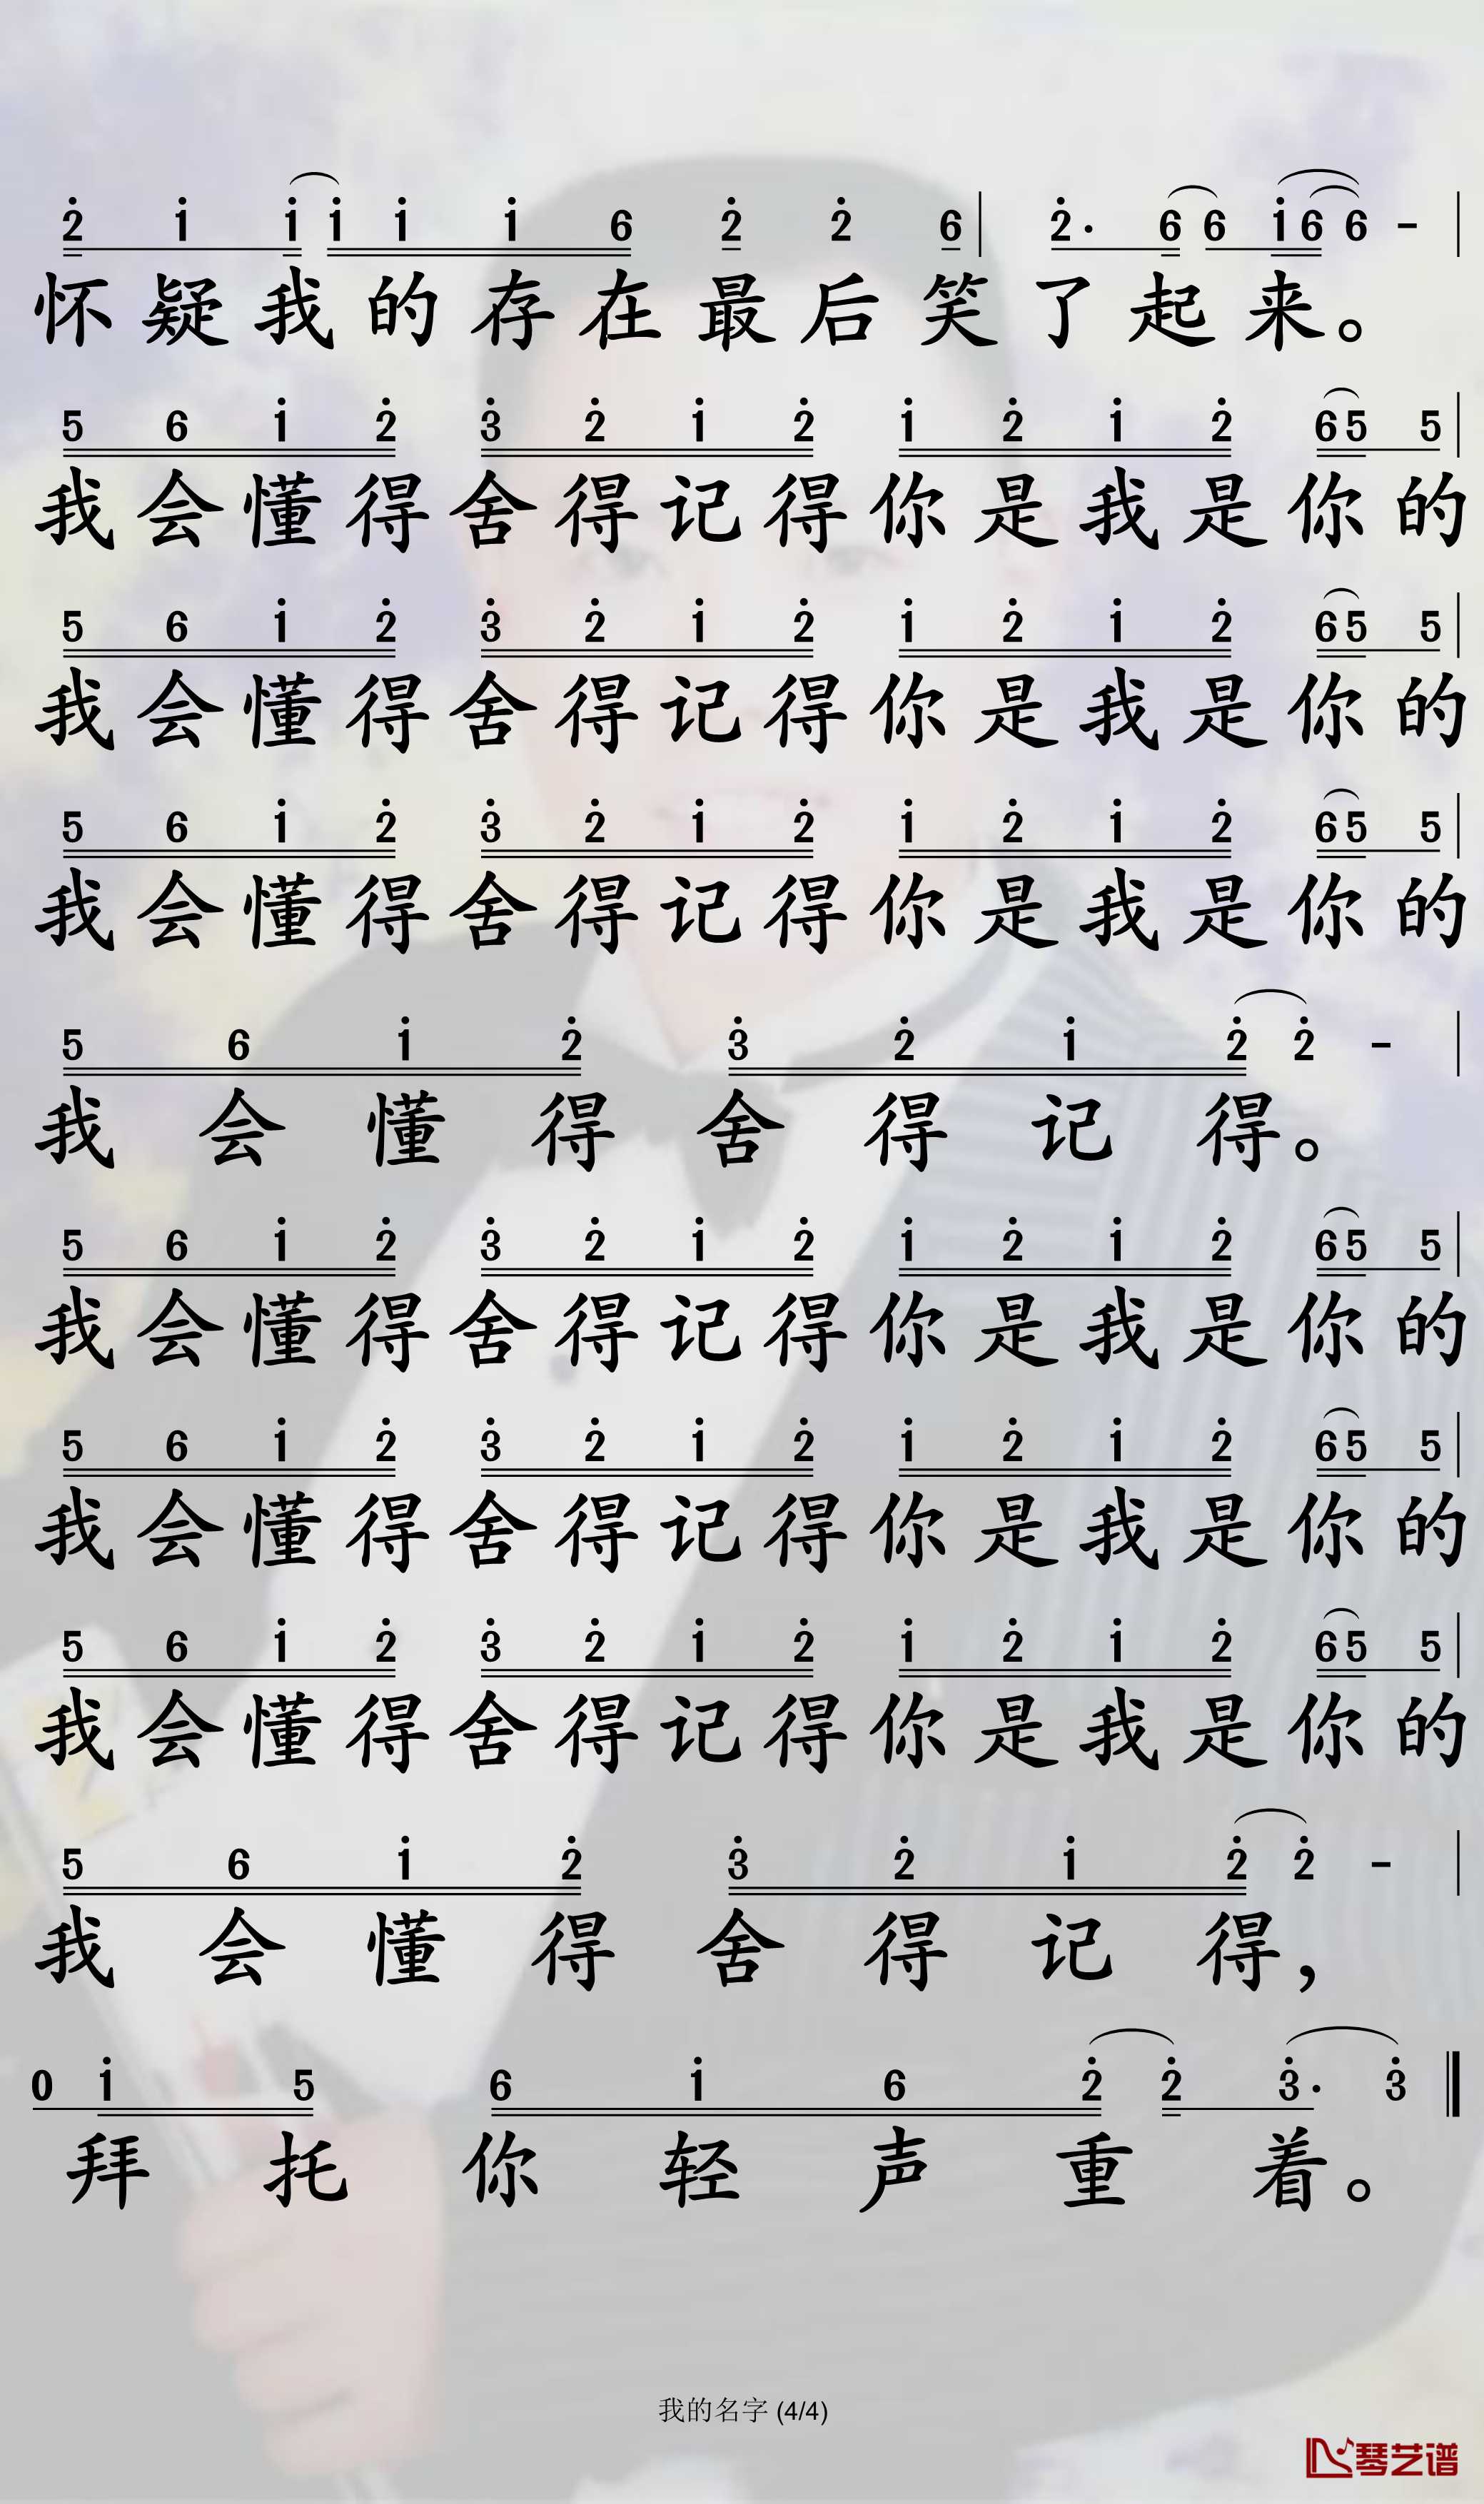 2̇ 1̇ 1̇ 1̇ 1̇ 1̇ 6 2̇ 2̇ 6 | 2̇· 6 6 1̇ 6 6 - |
怀疑我的存在最后笑了起来。
5 6 1̇ 2̇ 3̇ 2̇ 1̇ 2̇ 1̇ 2̇ 1̇ 2̇ 6 5 5 |
我会懂得舍得记得你是我是你的
5 6 1̇ 2̇ 3̇ 2̇ 1̇ 2̇ 1̇ 2̇ 1̇ 2̇ 6 5 5 |
我会懂得舍得记得你是我是你的
5 6 1̇ 2̇ 3̇ 2̇ 1̇ 2̇ 1̇ 2̇ 1̇ 2̇ 6 5 5 |
我会懂得舍得记得你是我是你的
5 6 1̇ 2̇ 3̇ 2̇ 1̇ 2̇ 2̇ - |
我会懂得舍得记得。
5 6 1̇ 2̇ 3̇ 2̇ 1̇ 2̇ 1̇ 2̇ 1̇ 2̇ 6 5 5 |
我会懂得舍得记得你是我是你的
5 6 1̇ 2̇ 3̇ 2̇ 1̇ 2̇ 1̇ 2̇ 1̇ 2̇ 6 5 5 |
我会懂得舍得记得你是我是你的
5 6 1̇ 2̇ 3̇ 2̇ 1̇ 2̇ 1̇ 2̇ 1̇ 2̇ 6 5 5 |
我会懂得舍得记得你是我是你的
5 6 1̇ 2̇ 3̇ 2̇ 1̇ 2̇ 2̇ - |
我会懂得舍得记得，
0 1̇ 5 6 1̇ 6 2̇ 2̇ 3̇· 3̇ ‖
拜托你轻声重着。
我的名字 (4/4)
琴艺谱